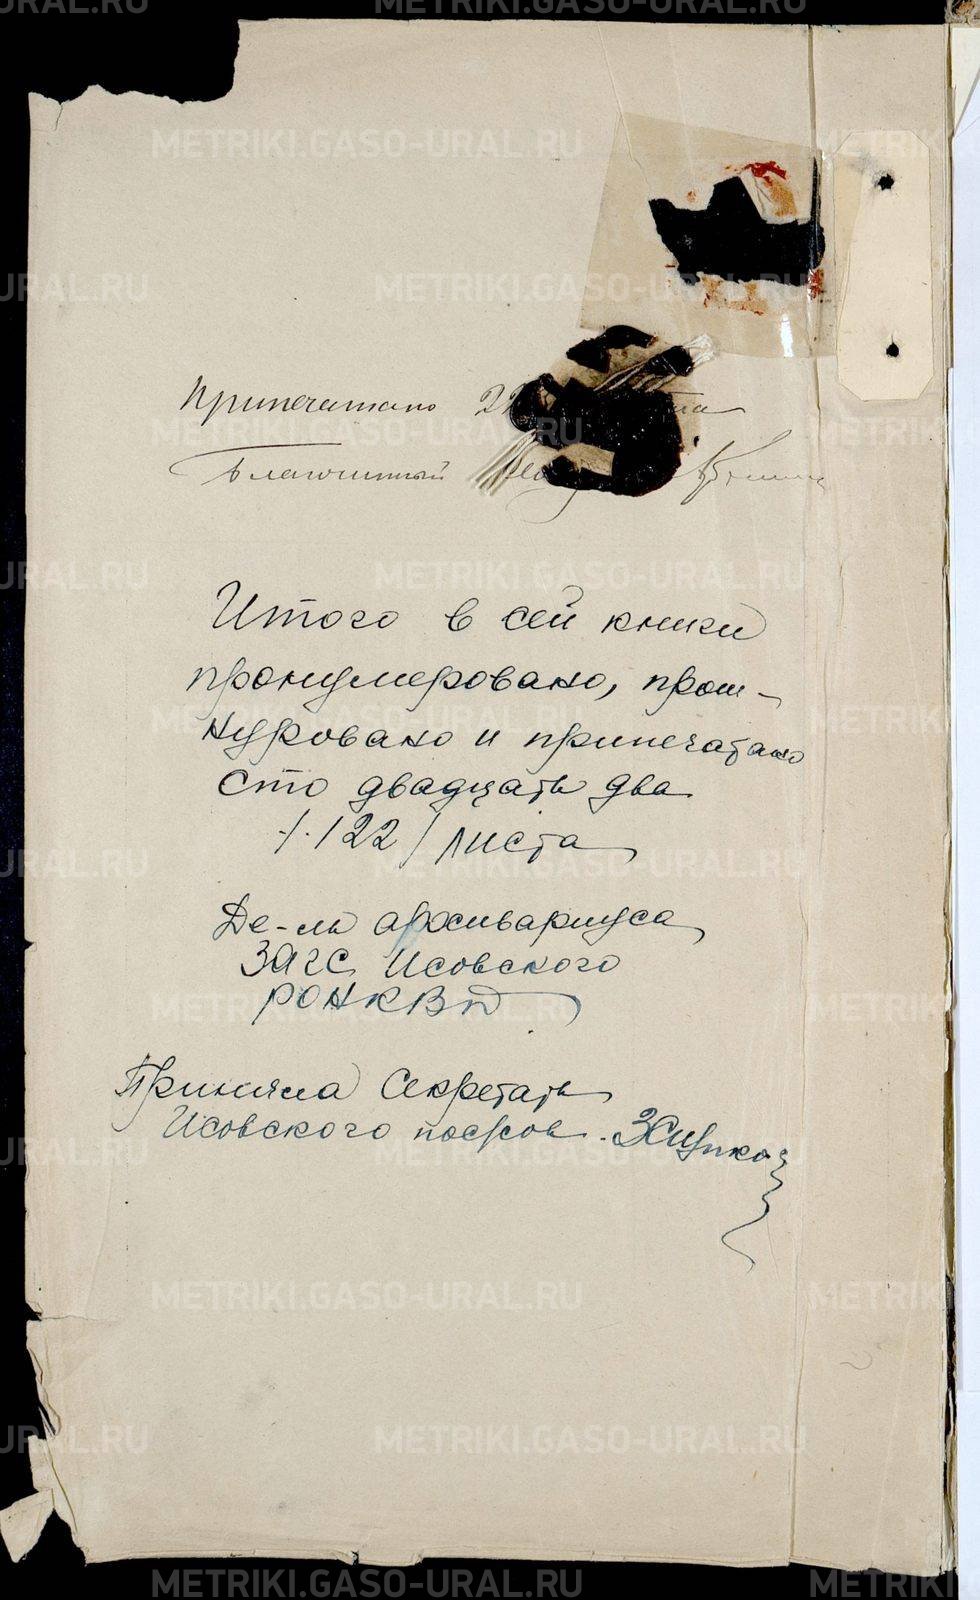 Припечатано
Благочинный
Итого в сей книги
пронумеровано, прош-
нуровано и припечатано
сто двадцать два
/122/ листа
Де-ль архивариуса
ЗАГС Исовского
РОНКВД
Приняла Секретать
Исовского
METRIKI.GASO-URAL.RU